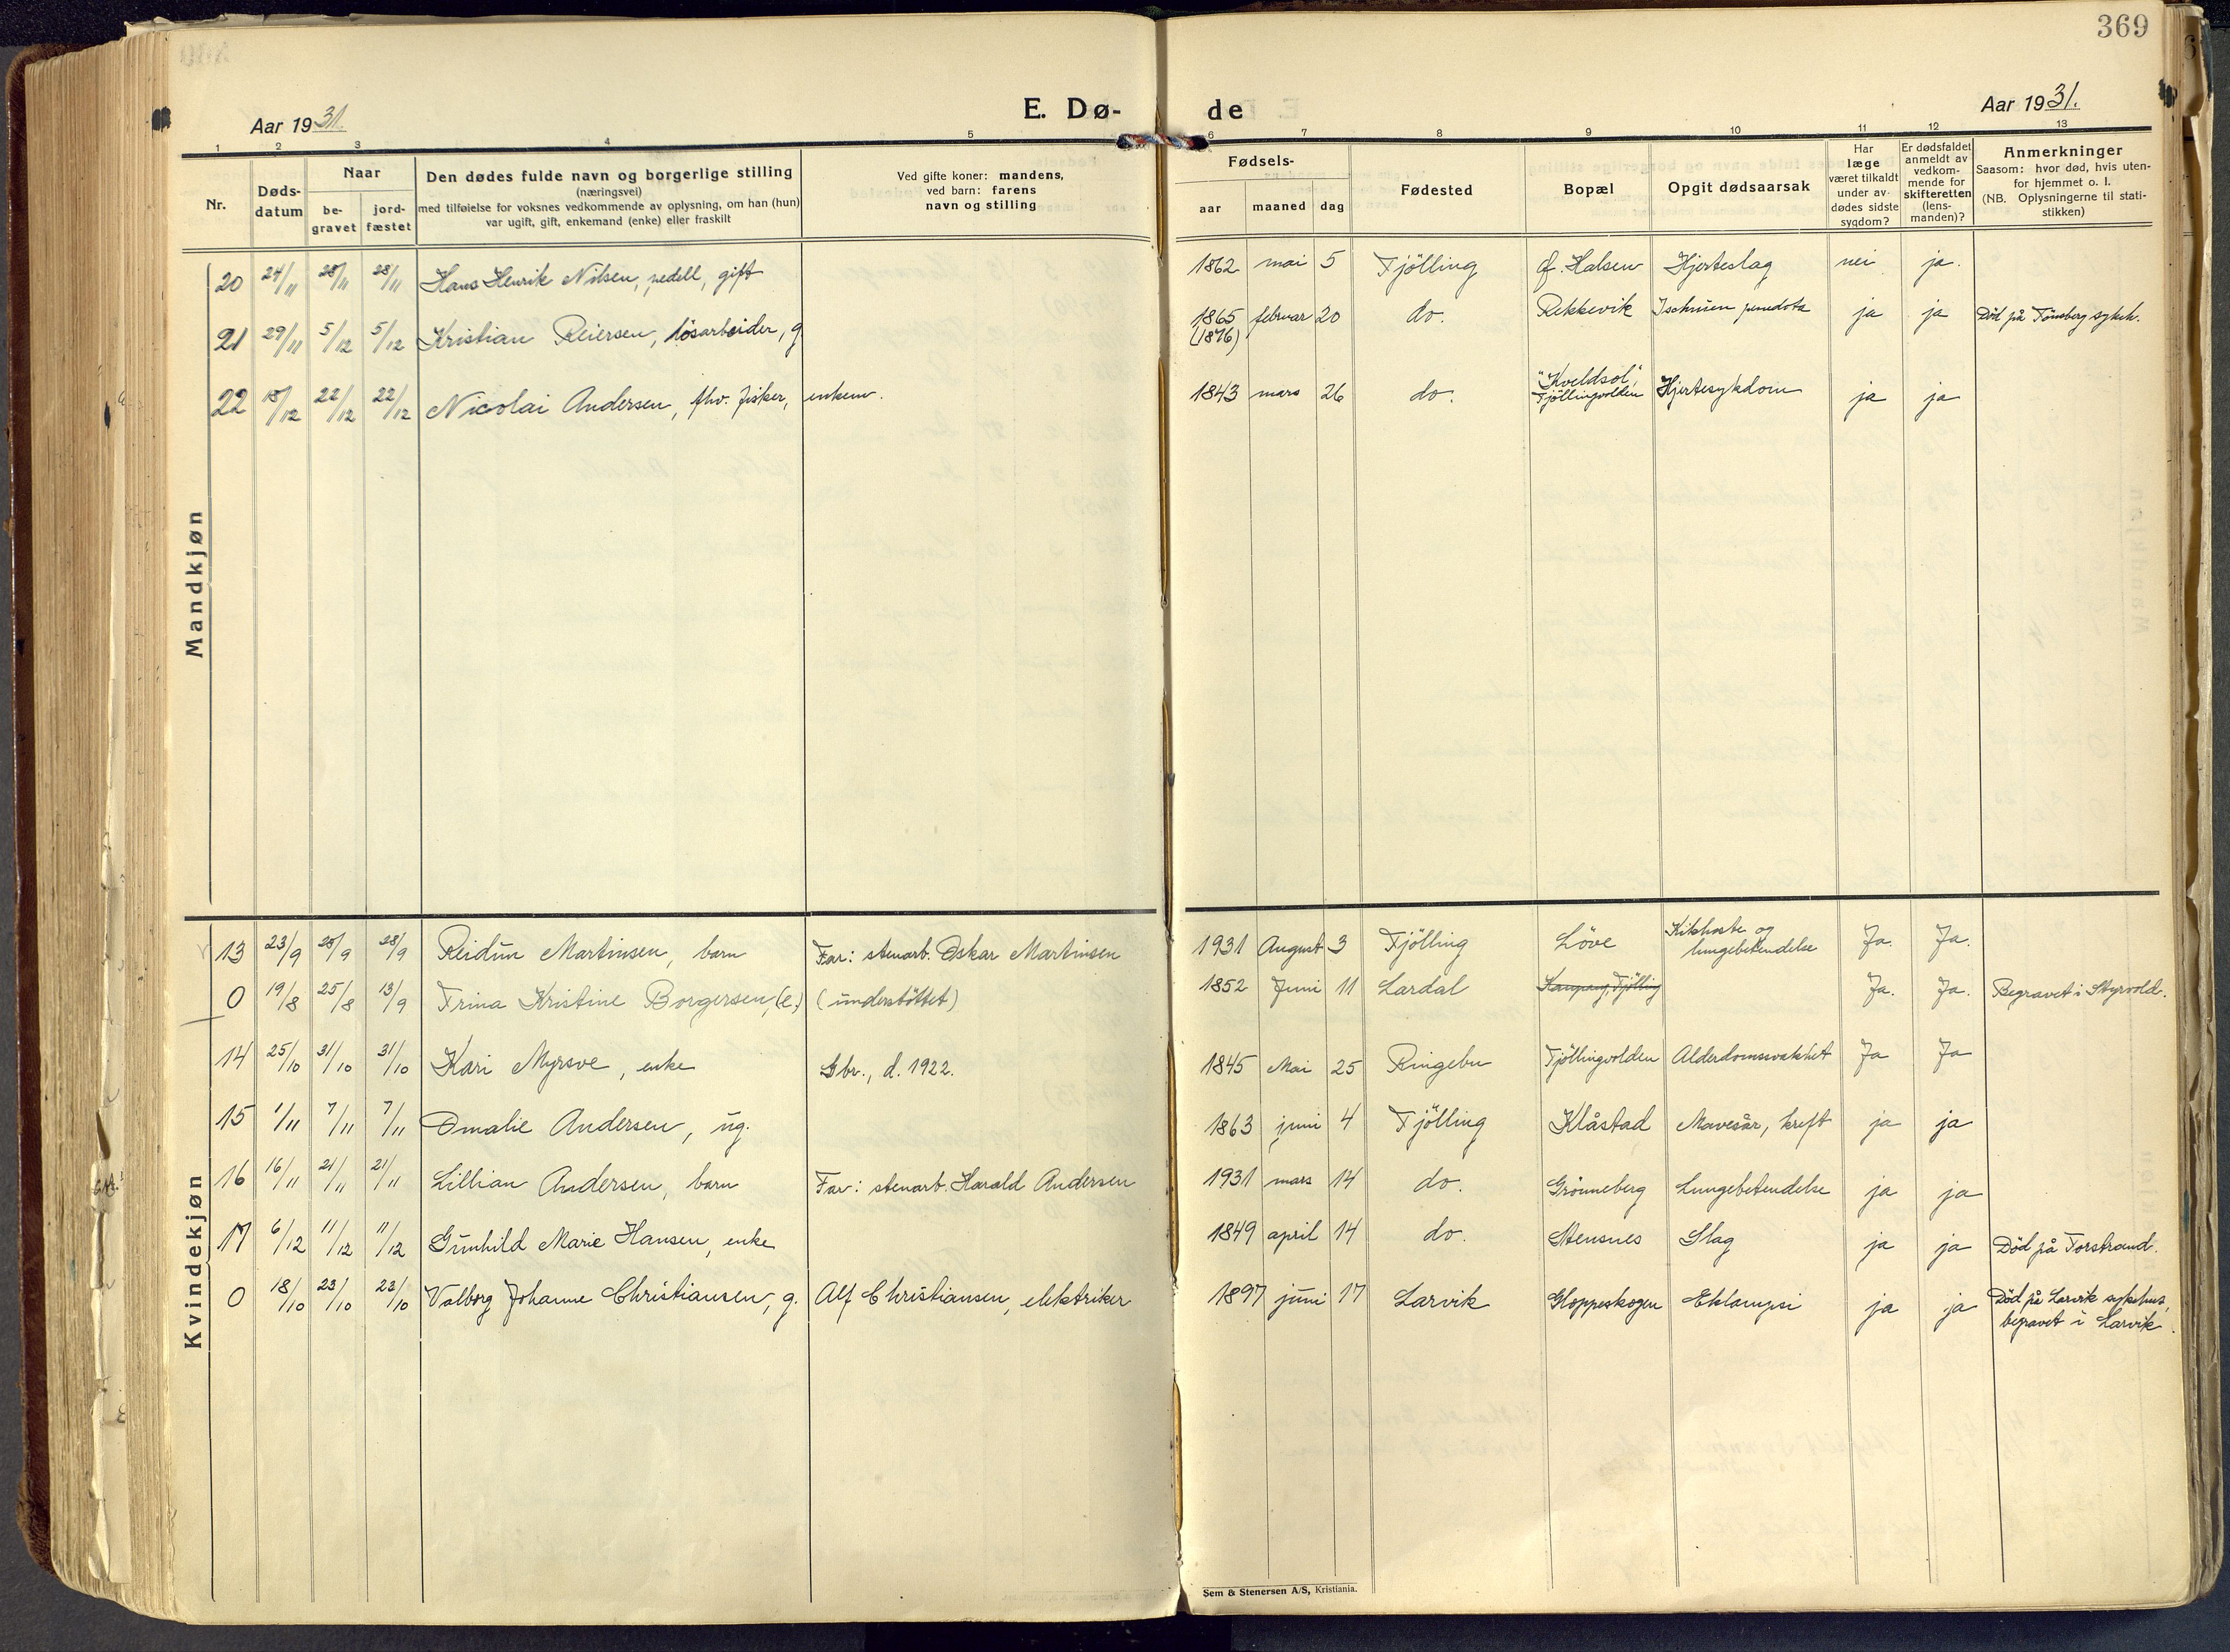 369
Aar 1931.
E. Dø-
de
Aar 1931.
1 2 3 4 5 6 7 8 9 10 11 12 13
Nr.
Døds-
datum
Naar
be-
gravet
jord-
fæstet
Den dødes fulde navn og borgerlige stilling
(næringsvei)
med tilføielse for voksnes vedkommende av oplysning, om han (hun)
var ugift, gift, enkemand (enke) eller fraskilt
Ved gifte koner: mandens,
ved barn: farens
navn og stilling
Fødsels-
aar maaned dag
Fødested
Bopæl
Opgit dødsaarsak
Har
læge
været tilkaldt
under av-
dødes sidste
sygdom?
Er dødsfaldet
anmeldt av
vedkom-
mende for
skifteretten
(lens-
manden)?
Anmerkninger
Saasom: hvor død, hvis uten-
for hjemmet o. l.
(NB. Oplysningerne til stati-
stikken)
Mandkjøn
20 24/11 28/11 28/11 Hans Henrik Nilsen, pedell, gift 1862 mai 5 Tjölling Ø. Halsen Hjerteslag nei ja.
21 29/11 5/12 5/12 Kristian Reiersen, løsarbeider, g. 1865 februar 20 do. Rekkevik ja ja Död på Tönsberg sykeh.
(1876)
22 15/12 22/12 22/12 Nicolai Andersen, fhv. fisker, enkem. 1843 mars 26 do. "Kveldsol", Hjertesykdom ja ja
Tjöllingvolden
Kvindekjøn
13 23/9 28/9 28/9 Reidun Martinsen, barn Far: stenarb. Oskar Martinsen 1931 August 3 Tjölling Löve Kikhoste og Ja. Ja.
lungebetendelse
0 19/8 25/8 13/9 Trina Kristine Borgersen, (e.) (understöttet) 1852 Juni 11 Lardal Kaupang, Tjölling Ja. Ja. Begravet i Styrvold.
14 25/10 31/10 31/10 Kari Myrsve, enke Gbr., d. 1922. 1845 Mai 25 Ringebu Tjöllingvolden Alderdomssvakhet Ja Ja
15 1/11 7/11 7/11 Omalie Andersen, ug. 1863 juni 4 Tjölling Klåstad Mavesår, kreft ja ja
16 16/11 21/11 21/11 Lillian Andersen, barn Far: stenarb. Harald Andersen 1931 mars 14 do. Grönneberg Lungebetendelse ja ja
17 6/12 11/12 11/12 Gunhild Marie Hansen, enke 1849 april 14 do. Stensnes Slag ja ja Död på Torstrand.
0 18/10 23/10 23/10 Valborg Johanne Christiansen, g. Alf Christiansen, elektriker 1897 juni 17 Larvik Gloppeskogen Eklampsi ja ja Död på Larvik sykehus,
begravet i Larvik.
Sem & Stenersen A/S, Kristiania.